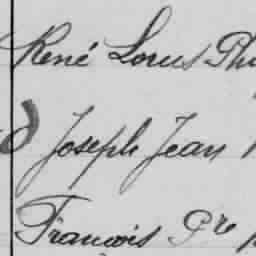 René Louis
Joseph Jean
Francois Pre